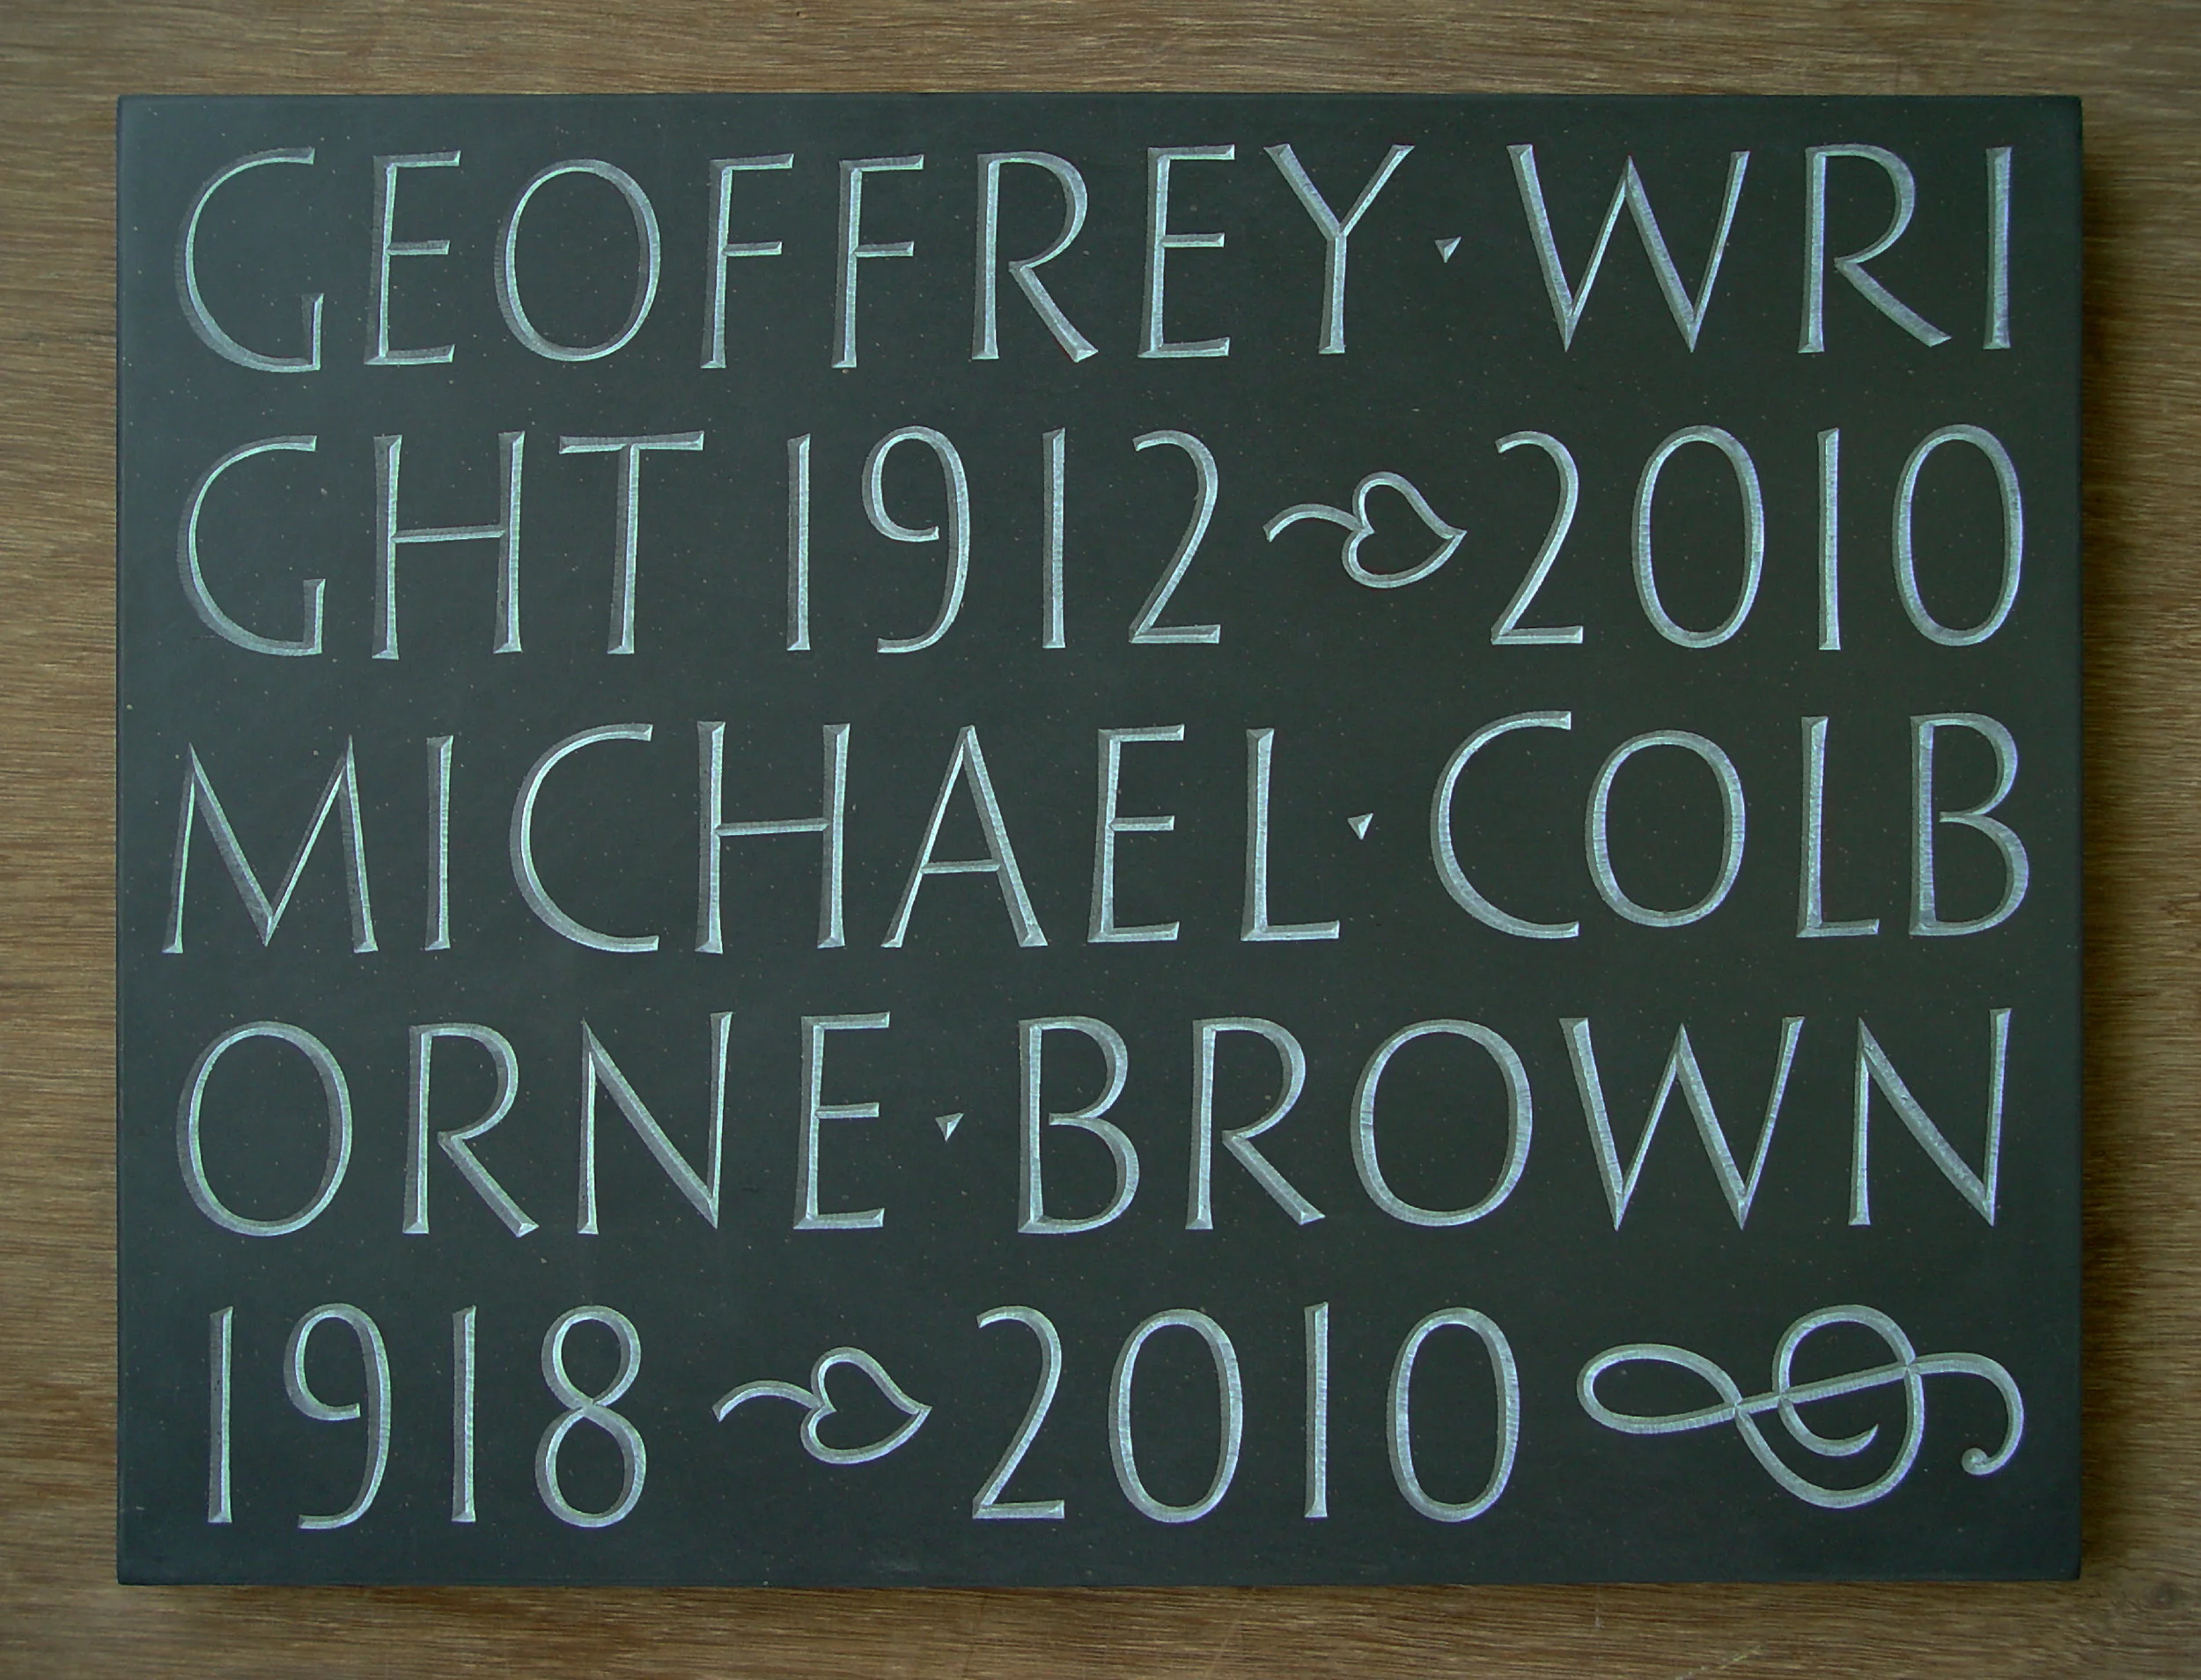 GEOFFREY · WRI
GHT 1912 ❧ 2010
MICHAEL · COLB
ORNE · BROWN
1918 ❧ 2010